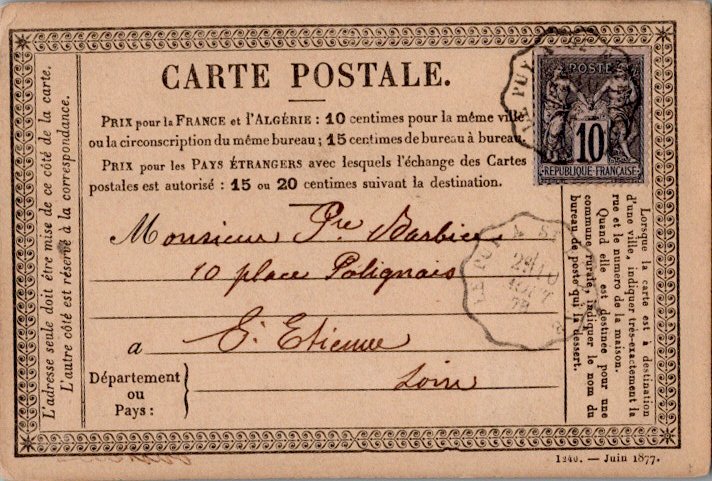 CARTE POSTALE.
PRIX pour la FRANCE et l'ALGÉRIE : 10 centimes pour la même ville
ou la circonscription du même bureau ; 15 centimes de bureau à bureau
PRIX pour les PAYS ÉTRANGERS avec lesquels l'échange des Cartes
postales est autorisé : 15 ou 20 centimes suivant la destination.
L'adresse seule doit être mise de ce côté de la carte.
L'autre côté est réservé à la correspondance.
LE PUY
POSTE
10
RÉPUBLIQUE FRANÇAISE
Monsieur Pre Barbier
10 place Polignais
a St Etienne
Département
ou
Pays :
Loire
LE PUY A ST
29
79
Lorsque la carte est à destination
d'une ville, indiquer très-exactement la
rue et le numéro de la maison.
Quand elle est destinée pour une
commune rurale, indiquer le nom du
bureau de poste qui la dessert.
1240. — Juin 1877.